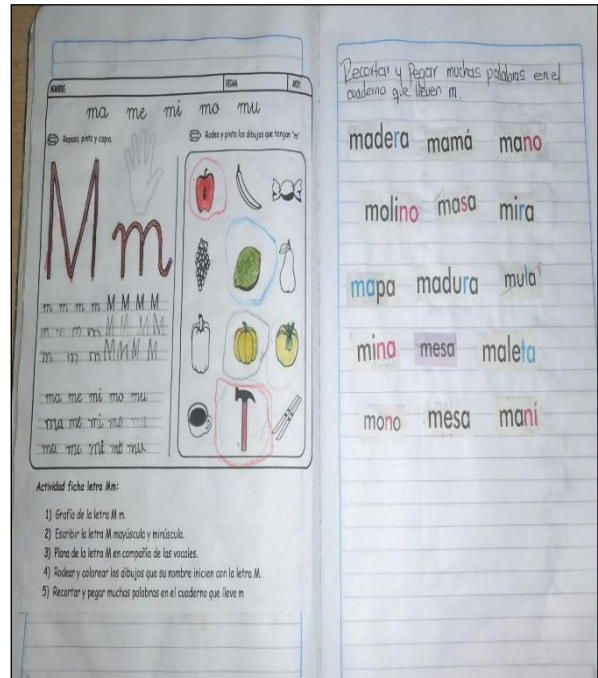 NOMBRE:
FECHA
Nº07:
ma me mi mo mu
Repasa, pinta y copia.
Rodea y pinta los dibujos que tengan "m"
M m
m m m m M M M M
m m m m M M M M
m m m M M M M
ma me mi mo mu
ma me mi mo mu
ma me mi mo mu
Actividad ficha letra Mm:
1) Grafía de la letra M m.
2) Escribir la letra M mayúscula y minúscula.
3) Plana de la letra M en compañía de las vocales.
4) Rodear y colorear los dibujos que su nombre inicien con la letra M.
5) Recortar y pegar muchas palabras en el cuaderno que lleve m
Recortar y Pegar muchas palabras en el
cuaderno que lleven m.
madera mamá mano
molino masa mira
mapa madura mula
mina mesa maleta
mono mesa maní